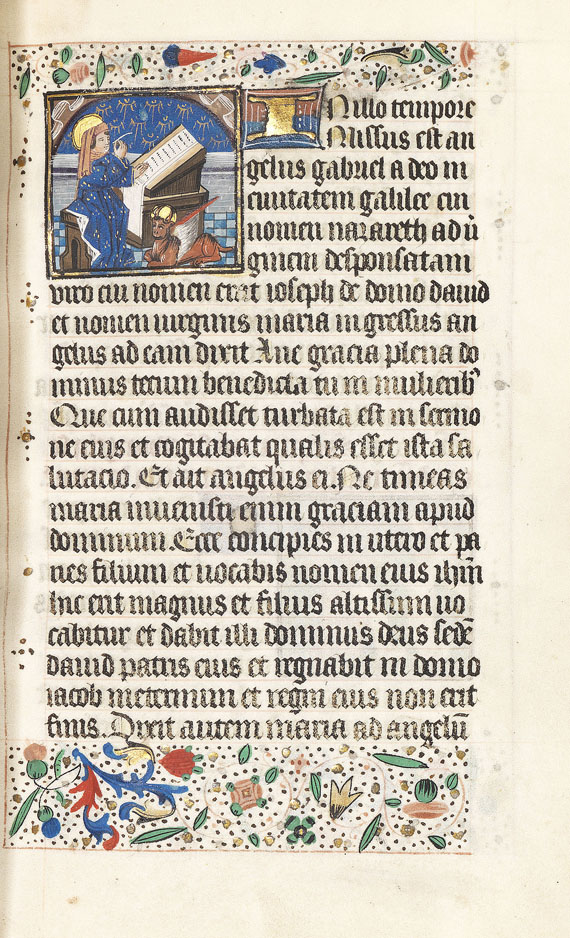 In illo tempore
Missus est an
gelus gabriel a deo in
ciuitatem galilee cui
nomen nazareth ad uir
ginem desponsatam
viro cui nomen erat ioseph de domo dauid
et nomen uirginis maria ingressus an
gelus ad eam dixit Aue gracia plena do
minus tecum benedicta tu in mulierib9
Que cum audisset turbata est in sermo
ne eius et cogitabat qualis esset ista sa
lutacio. Et ait angelus ei. Ne timeas
maria inuenisti enim graciam apud
dominum. Ecce concipies in utero et pa
ries filium et uocabis nomen eius ihm̄
hic erit magnus et filius altissimi uo
cabitur et dabit illi dominus deus sedē
dauid patris eius et regnabit in domo
iacob ineternum et regni eius non erit
finis. Dixit autem maria ad angelū